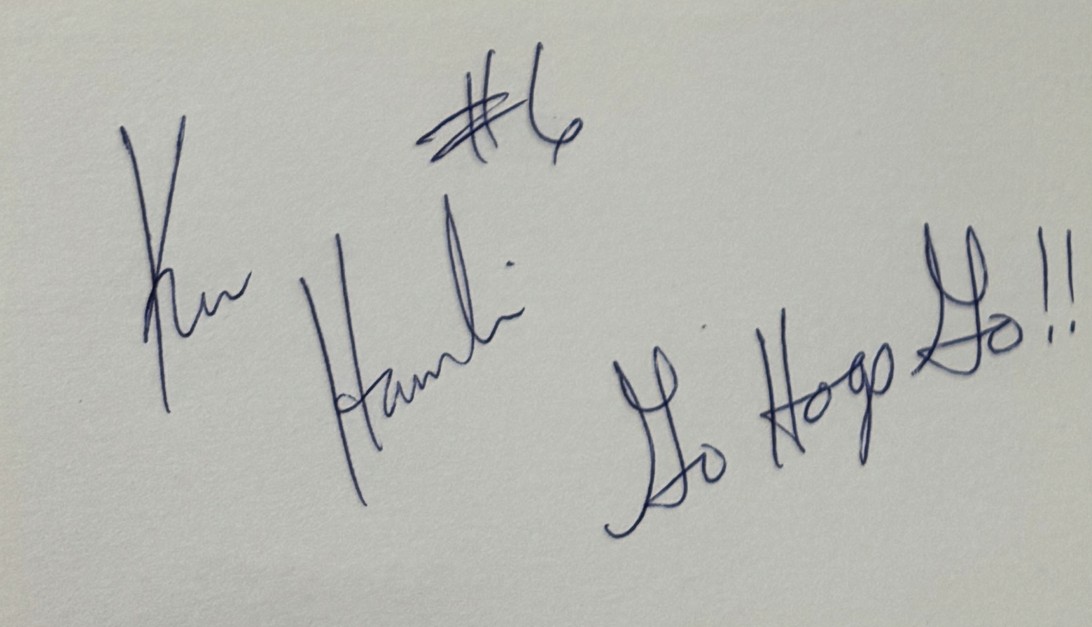 #6
Ken Hamlin
Go Hogs Go!!